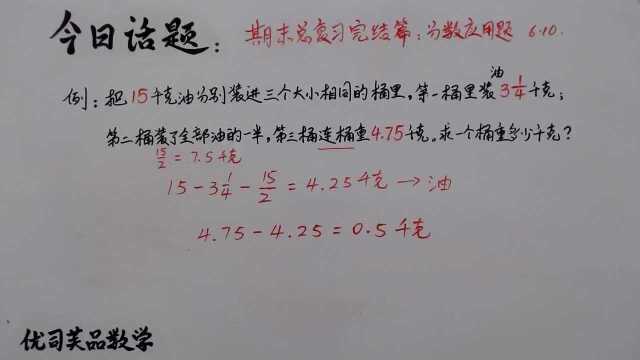 今日话题：期末总复习完结篇：分数应用题 6.10.
油
例：把15千克油分别装进三个大小相同的桶里，第一桶里装3 1/4千克；
第二桶装了全部油的一半，第三桶连桶重4.75千克。求一个桶重多少千克？
15/2 = 7.5千克
15 - 3 1/4 - 15/2 = 4.25千克 → 油
4.75 - 4.25 = 0.5千克
优司芙品数学